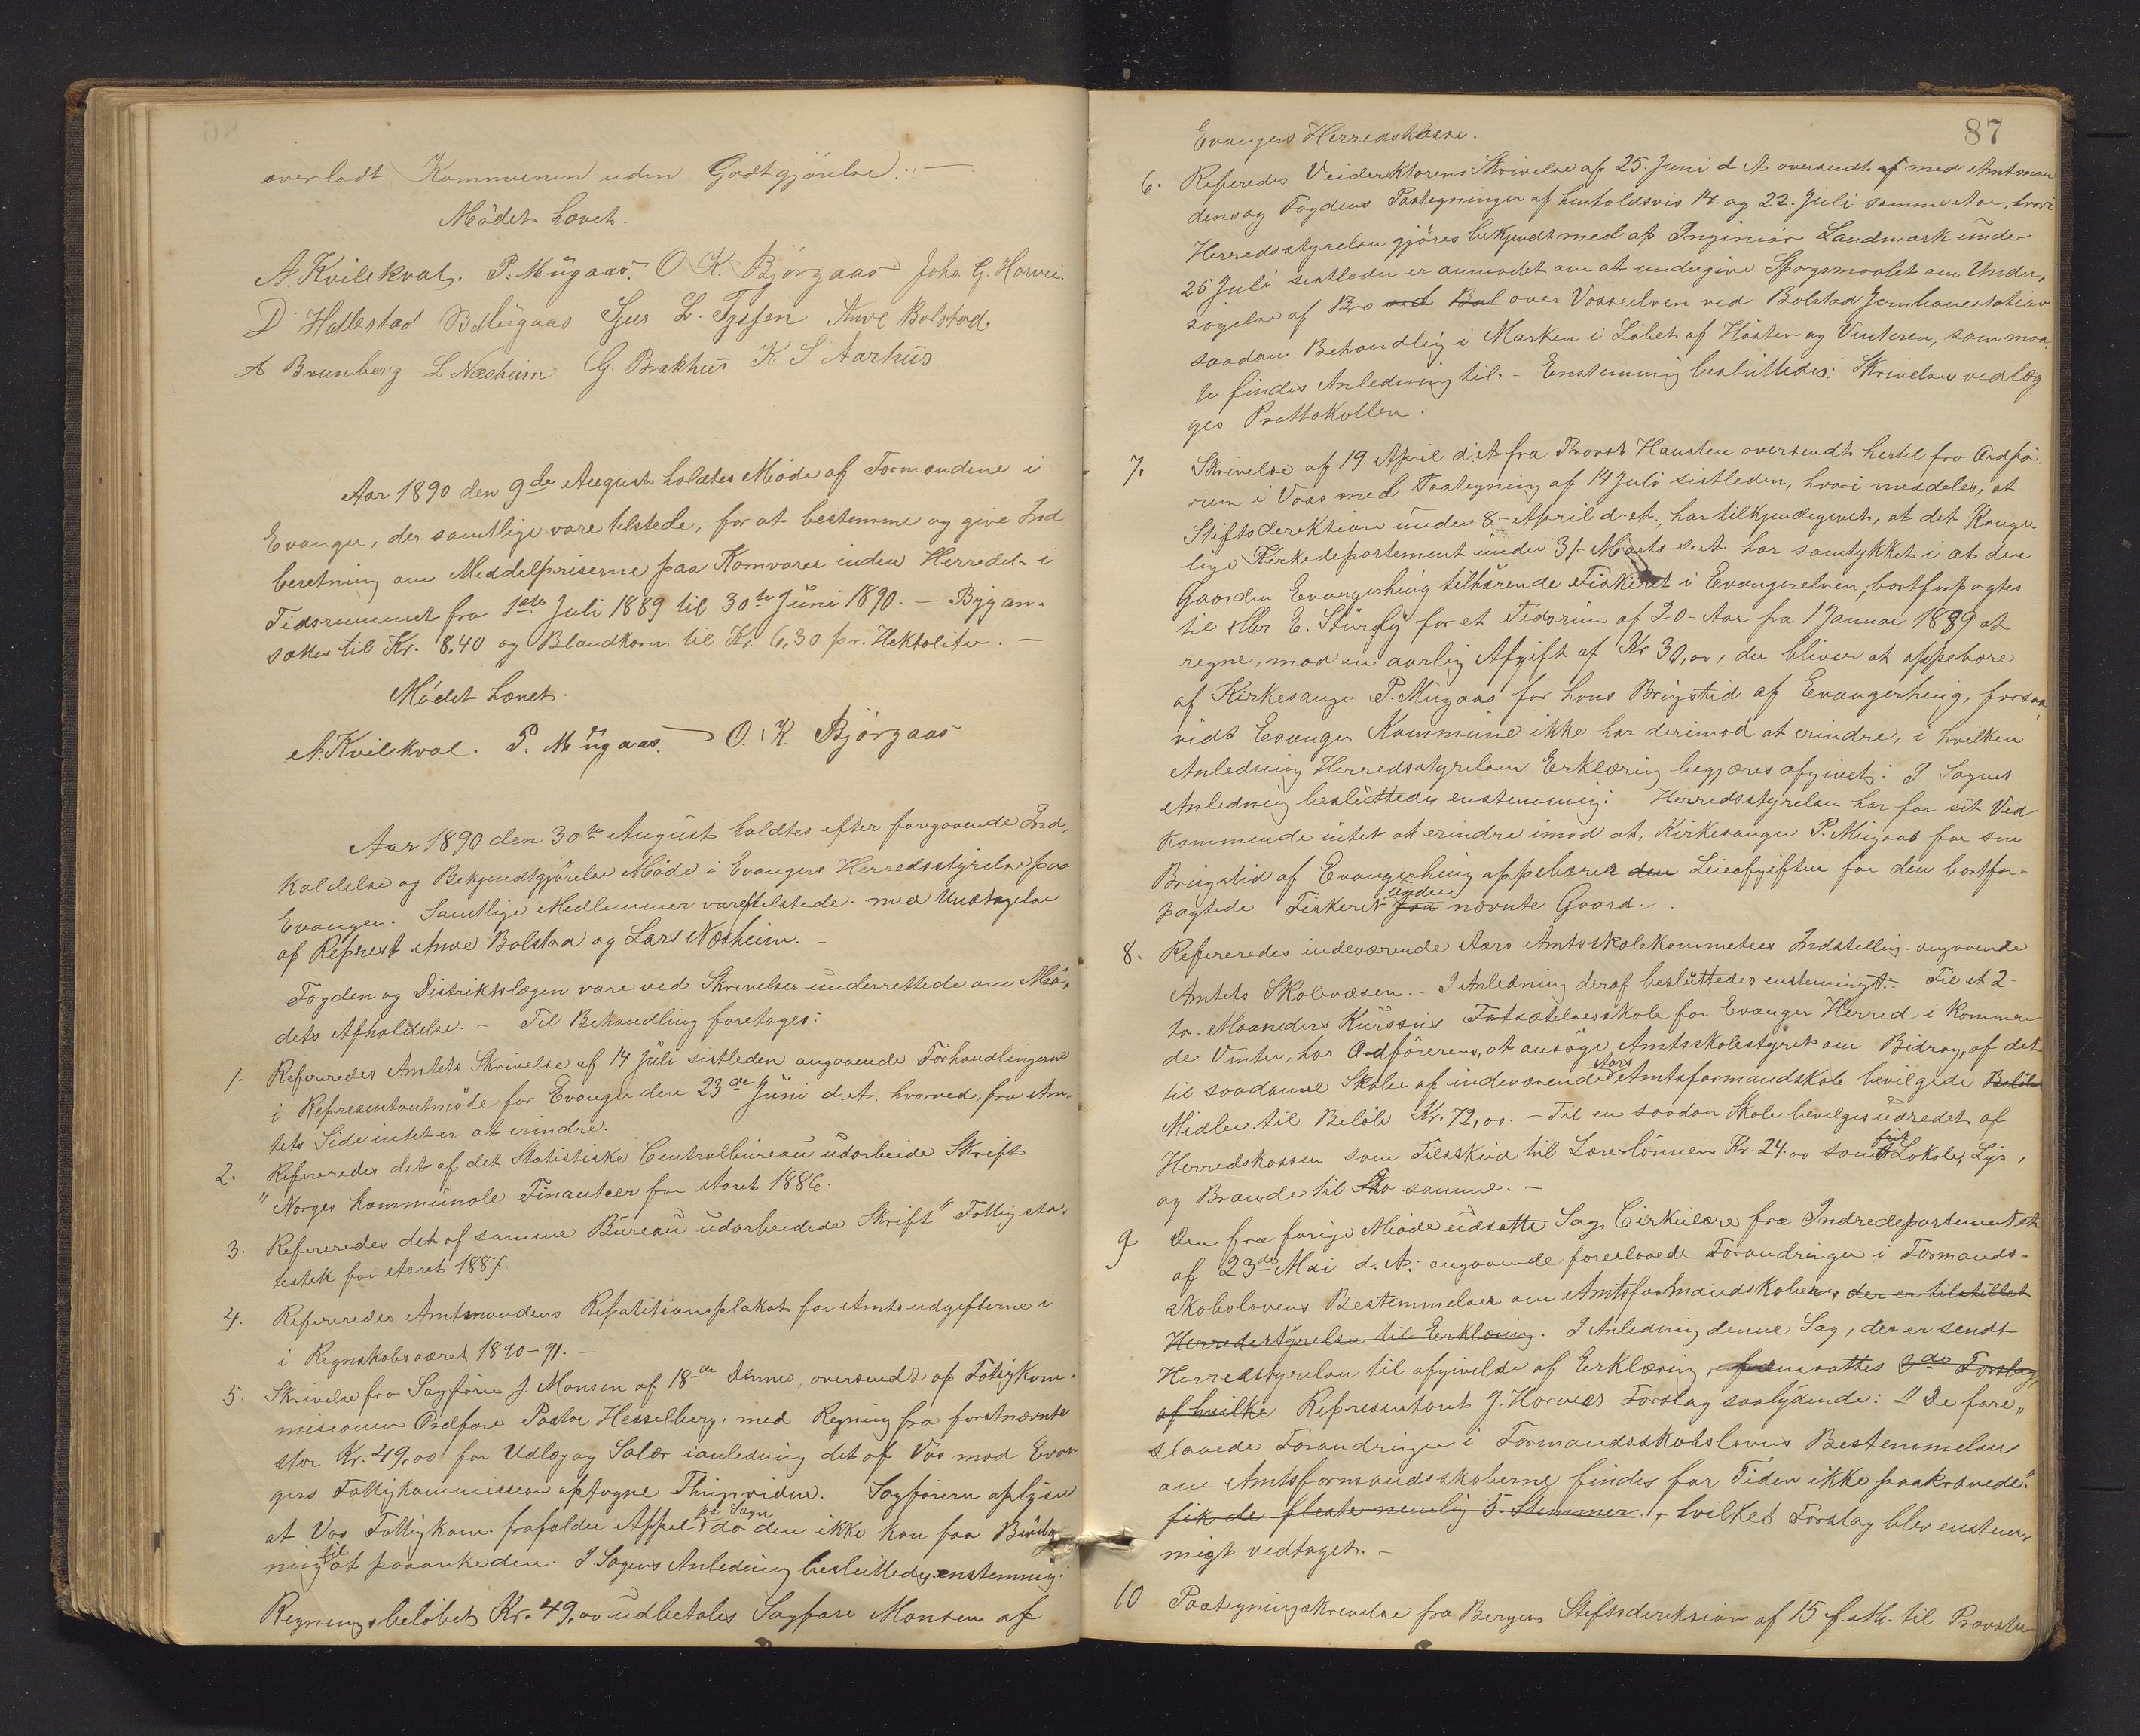 overladt Kommunen uden Godtgjörelse. –
Mödet hævet.
A. Kvilekval. P. Mügaas. O. K. Bjørgaas Johs. G. Horvei.
D Hallestad B Mügaas Sjur L. Tyssen Anve Bolstad.
A Brunborg L Næsheim G. Brakhus K S Aarhus
Aar 1890 den 9de August holdtes Möde af Formændene i
Evanger, der samtlige vare tilstede, for at bestemme og give Ind
beretning om Meddelpriserne paa Kornvarer inden Herredet i
Tidsrummet fra 1ste Juli 1889 til 30te Juni 1890. – Byg an-
sættes til Kr. 8,40 og Blandkorn til Kr. 6,30 pr. Hektoliter. –
Mödet hævet.
A. Kvilekval. P. Mügaas. O. K. Bjørgaas
Aar 1890 den 30te August holdtes efter foregaaende Ind,
kaldelse og Bekjendtgjörelse Möde i Evangers Herredsstyrelse paa
Evanger. Samtlige Medlemmer vare tilstede med Undtagelse
af Represt Anve Bolstad og Lars Næsheim. –
Fogden og Distriktslægen vare ved Skrivelser underrettede om Mö,
dets Afholdelse. – Til Behandling foretoges:
1. Refereredes Amtets Skrivelse af 14 Juli sistleden angaaende Forhandlingerne
i Representantmöde for Evanger den 23de Juni d. A. hvorved fra Am-
tets Side intet er at erindre.
2. Refereredes det af det Statistiske Centralbureau udarbeide Skrift
"Norges kommunale Finantser for Aaret 1886.
3. Refereredes det af samme Bureau udarbeidede Skrift "Fattigsta-
testik for Aaret 1887.
4. Refereredes Amtmandens Repatitionsplakat for Amtsudgifterne i
i Regnskabsaaret 1890–91. –
5. Skrivelse fra Sagförer J. Monsen af 18de dennes, oversendt af Fattigkom-
misionens Ordförer Pastor Hesselberg, med Regning fra forstnævnte
stor Kr. 49,00 for Udlæg og Salær ianledning det af Vos mod Evan
gers Fattigkommission optagne Thingsvidne. Sagföreren oplyser
at Vos Fattigkom. frafalder Appel på Sagen da den ikke kan faa Bevilg-
ning til at paaanke den. I Sagens Anledning besluttedes enstemmig:
Regningsbelöbet Kr. 49,00 udbetales Sagförer Monsen af
87
Evangers Herredskasse.
6. Referedes Veiderektörens Skrivelse af 25. Juni d A oversendt af med Amtman
dens og Fogdens Paategninger af henholdsvis 14. og 22. Juli samme Aar, hvori
Herredsstyrelsen gjöres bekjendt med at Inginiör Landmark under
25 Juli sistleden er anmodet om at undergive Spörgsmaalet om Under,
sögelse af Bro ved Bol over Vosseelven ved Bolstad Jernbanestation
saadan Behandlig i Marken i Löbet af Hösten og Vinteren, som maa
te findes Anledning til. – Enstemmig besluttedes: Skrivelsen vedlæg
ges Prottokollen.
7. Skrivelse af 19. April d. A. fra Provst Hansten oversendt hertil fra Ordfö-
reren i Voss med Paategning af 14 Juli sistleden, hvori meddeles, at
Stiftsderektionen under 8– April d. A., har tilkjendegivet, at det Konge-
lige Kirkedepartement under 31– Marts s. A. har samtykket i at den
Gaarden Evangerhüg tilhörende Fiskeret i Evangerelven, bortforpagtes
til Hr E. Sturgly for et Tidsrum af 20– Aar fra 1 Januar 1889 at
regne, mod en aarlig Afgift af Kr 30,00, der bliver at oppebære
af Kirkesanger P. Mügaas for hans Brugstid af Evangerhüg, forsaa,
vidt Evanger Kommune ikke har derimod at erindre, i hvilken
Anledning Herredsstyrelsen Erklæring begjæres afgivet: I Sagens
Anledning besluttedes enstemmig: Herredsstyrelsen har for sit Ved
kommende intet at erindre imod at, Kirkesanger P. Mügaas for sin
Brugstid af Evangerhüg oppebærer den Leieafgiften for den bortfor-
pagtede Fiskeret paa under nævnte Gaard.
8. Refereredes indeværende Aars Amtsskolekommetees Indstellig angaaende
Amtets Skolevæsen. – I Anledning deraf besluttedes enstemmigt: Til et 2–
to. Maaneders Kürssus Fortsættelsesskole for Evanger Herred i kommen
de Vinter, har Ordföreren, at ansöge Amtsskolestyret om Bidrag, af det
til saadanne Skoler af indeværende Aars Amtsformandskab bevilgede Belöb
Midler til Belöb Kr. 72,00. – Til en saadan Skole bevilges udredet af
Herredskassen som Tilskud til Lærerlönnen Kr. 24,00 samt frit Lokale, Lys,
og Brænde til Sko samme. –
9 Den fra forige Möde udsatte Sag, Cirkülære fra Indredepartementet
af 23de Mai d. A. angaaende foreslaaede Forandringer i Formands-
skabslovens Bestemmelser om Amtsformandskaber, der er tilstillet
Herredsstyrelsen til Erklæring. I Anledning denne Sag, der er sendt
Herredsstyrelsen til afgivelse af Erklæring, fremsattes 2de Forslag,
af hvilke Representant J. Horveis Forslag saalydende: "De fore,,
slaaede Forandringer i Formandsskabslovens Bestemmelser
om Amtsformandsskaberne findes for Tiden ikke paakrævede."
fik de fleste nemlig 5. Stemmer., hvilket Forslag blev enstem,
migt vedtaget. –
10 Paategningsskrivelse fra Bergens Stiftsderektion af 15 f. M. til Provsten